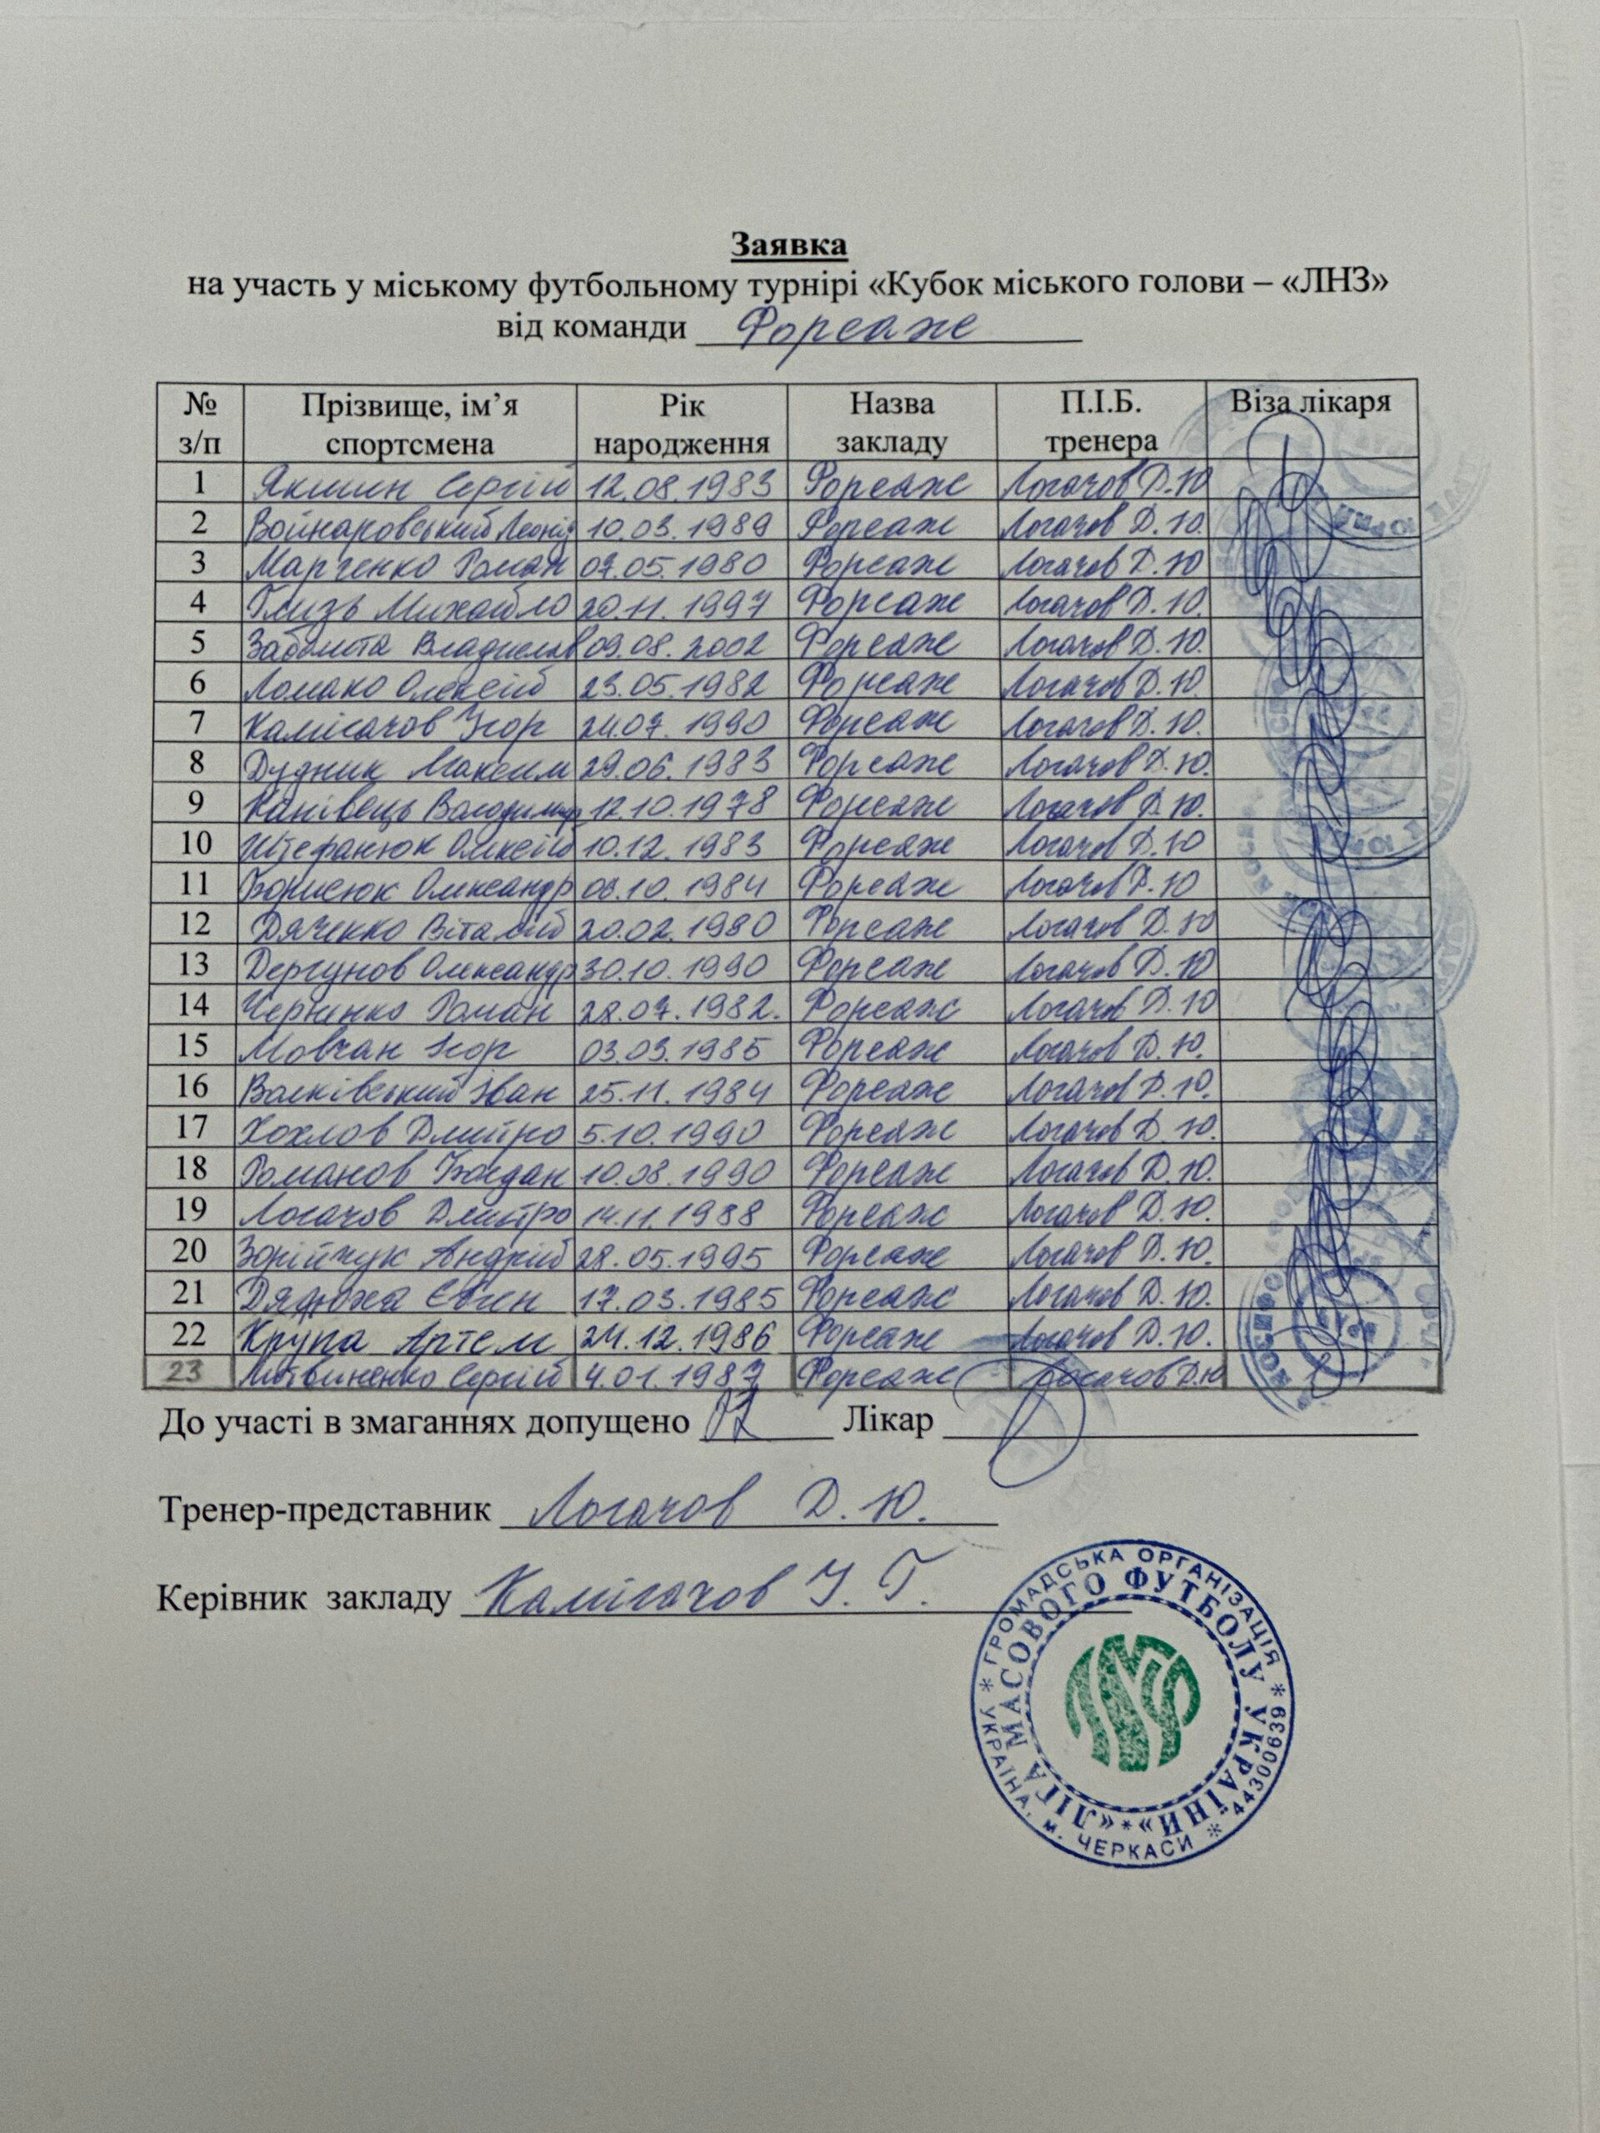 Заявка
на участь у міському футбольному турнірі «Кубок міського голови – «ЛНЗ»
від команди Форсаж
№ з/п Прізвище, ім’я спортсмена Рік народження Назва закладу П.І.Б. тренера Віза лікаря
1 Якшин Сергій 12.08.1983 Форсаж Логачов Д.Ю
2 Войнаровський Леонід 10.03.1989 Форсаж Логачов Д.Ю.
3 Марченко Роман 07.05.1980 Форсаж Логачов Д.Ю
4 Глизь Михайло 20.11.1997 Форсаж Логачов Д.Ю.
5 Заболота Владислав 09.08.2002 Форсаж Логачов Д.Ю.
6 Ломако Олексій 23.05.1982 Форсаж Логачов Д.Ю.
7 Калісачов Ігор 24.07.1990 Форсаж Логачов Д.Ю.
8 Дудник Максим 29.06.1983 Форсаж Логачов Д.Ю.
9 Канівець Володимир 12.10.1978 Форсаж Логачов Д.Ю.
10 Штефанюк Олексій 10.12.1983 Форсаж Логачов Д.Ю
11 Борисюк Олександр 06.10.1984 Форсаж Логачов Д.Ю
12 Дяченко Віталій 20.02.1980 Форсаж Логачов Д.Ю
13 Дергунов Олександр 30.10.1990 Форсаж Логачов Д.Ю
14 Черненко Роман 28.07.1982. Форсаж Логачов Д.Ю
15 Мовчан Ігор 03.03.1985 Форсаж Логачов Д.Ю.
16 Іван 25.11.1984 Форсаж Логачов Д.Ю.
17 Хохлов Дмитро 5.10.1990 Форсаж Логачов Д.Ю.
18 Романов Богдан 10.08.1990 Форсаж Логачов Д.Ю.
19 Логачов Дмитро 14.11.1988 Форсаж Логачов Д.Ю.
20 Зорійчук Андрій 28.05.1995 Форсаж Логачов Д.Ю.
21 Дядюха Євген 17.03.1985 Форсаж Логачов Д.Ю.
22 Крупа Артем 24.12.1986 Форсаж Логачов Д.Ю.
23 Литвиненко Сергій 4.01.1987 Форсаж Логачов Д.Ю
До участі в змаганнях допущено Лікар
Тренер-представник Логачов Д.Ю.
Керівник закладу Калісачов І.Г.
* ГРОМАДСЬКА ОРГАНІЗАЦІЯ *
УКРАЇНА, м. ЧЕРКАСИ * 44300639
«ЛІГА МАСОВОГО ФУТБОЛУ УКРАЇНИ»